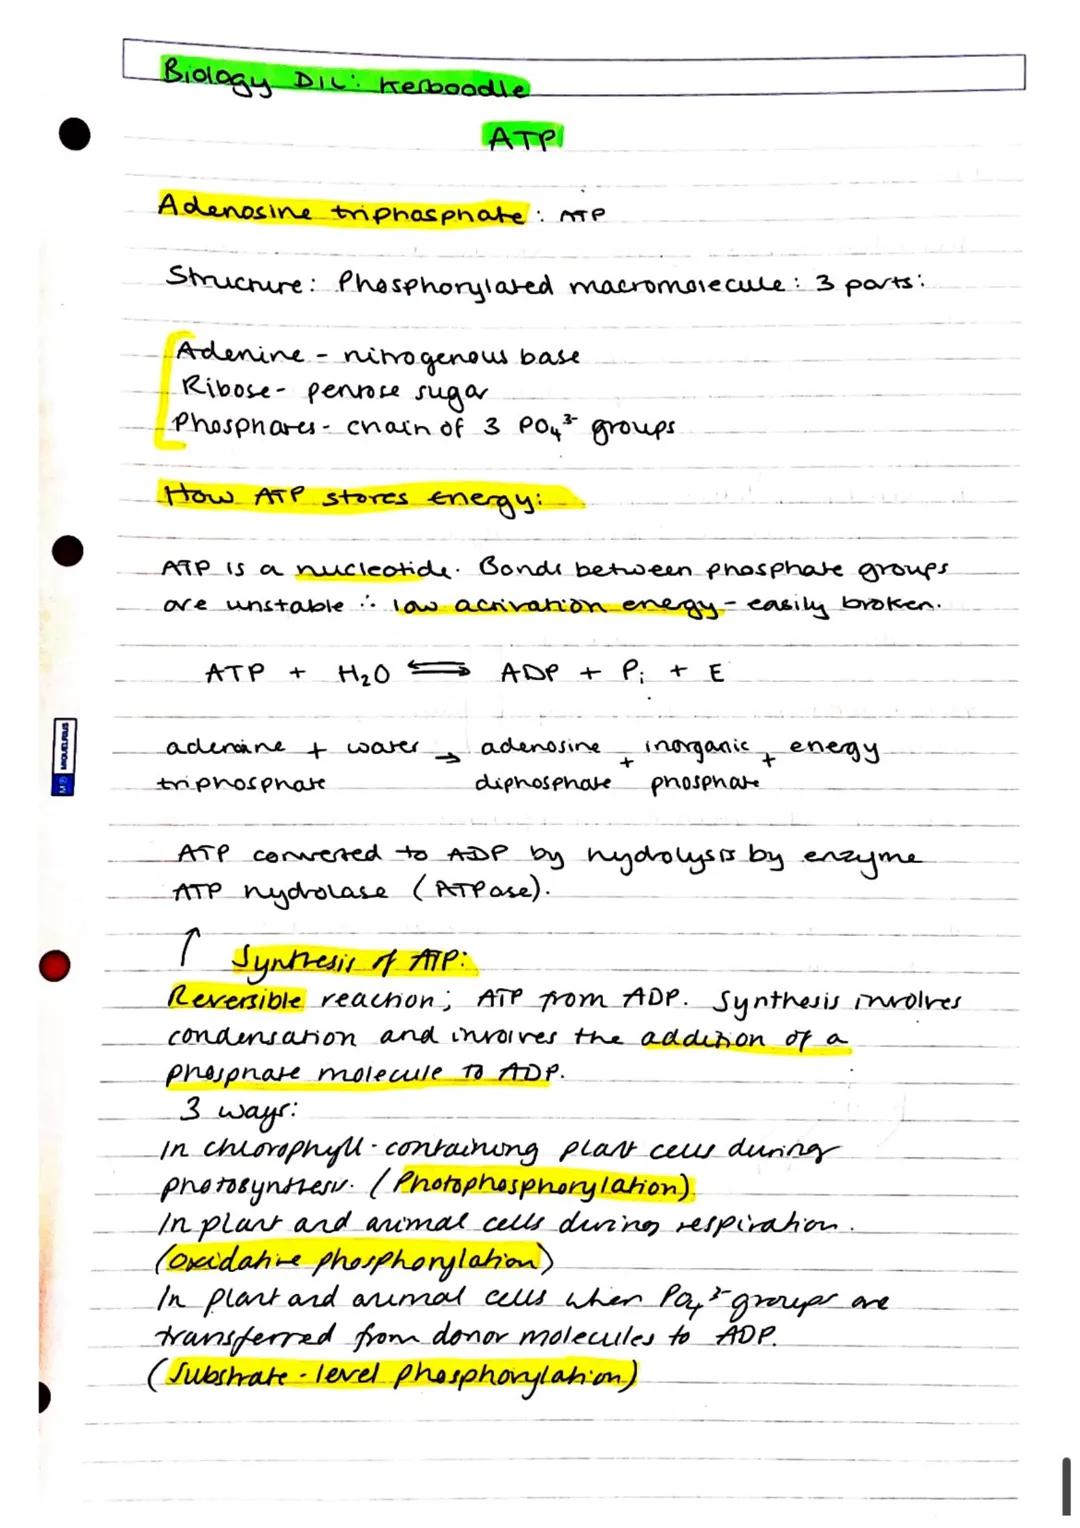 Biology DIL: Kerboodle
ATP
Adenosine triphosphate: ATP
Structure: Phosphorylated macromolecule: 3 parts:
Adenine - nitrogenous base
Ribose - pentose sugar
Phosphates - chain of 3 PO₄³⁻ groups
How ATP stores energy:
ATP is a nucleotide. Bonds between phosphate groups
are unstable ∴ low activation energy - easily broken.
ATP + H₂O ⇌ ADP + Pi + E
adenosine + water → adenosine + inorganic + energy
triphosphate diphosphate phosphate
ATP converted to ADP by hydrolysis by enzyme
ATP hydrolase (ATPase).
↑ Synthesis of ATP:
Reversible reaction; ATP from ADP. Synthesis involves
condensation and involves the addition of a
phosphate molecule to ADP.
3 ways:
In chlorophyll-containing plant cells during
photosynthesis. (Photophosphorylation)
In plant and animal cells during respiration.
(Oxidative phosphorylation)
In plant and animal cells when PO₄³⁻ groups are
transferred from donor molecules to ADP.
(Substrate-level phosphorylation)
MIQUELRIUS